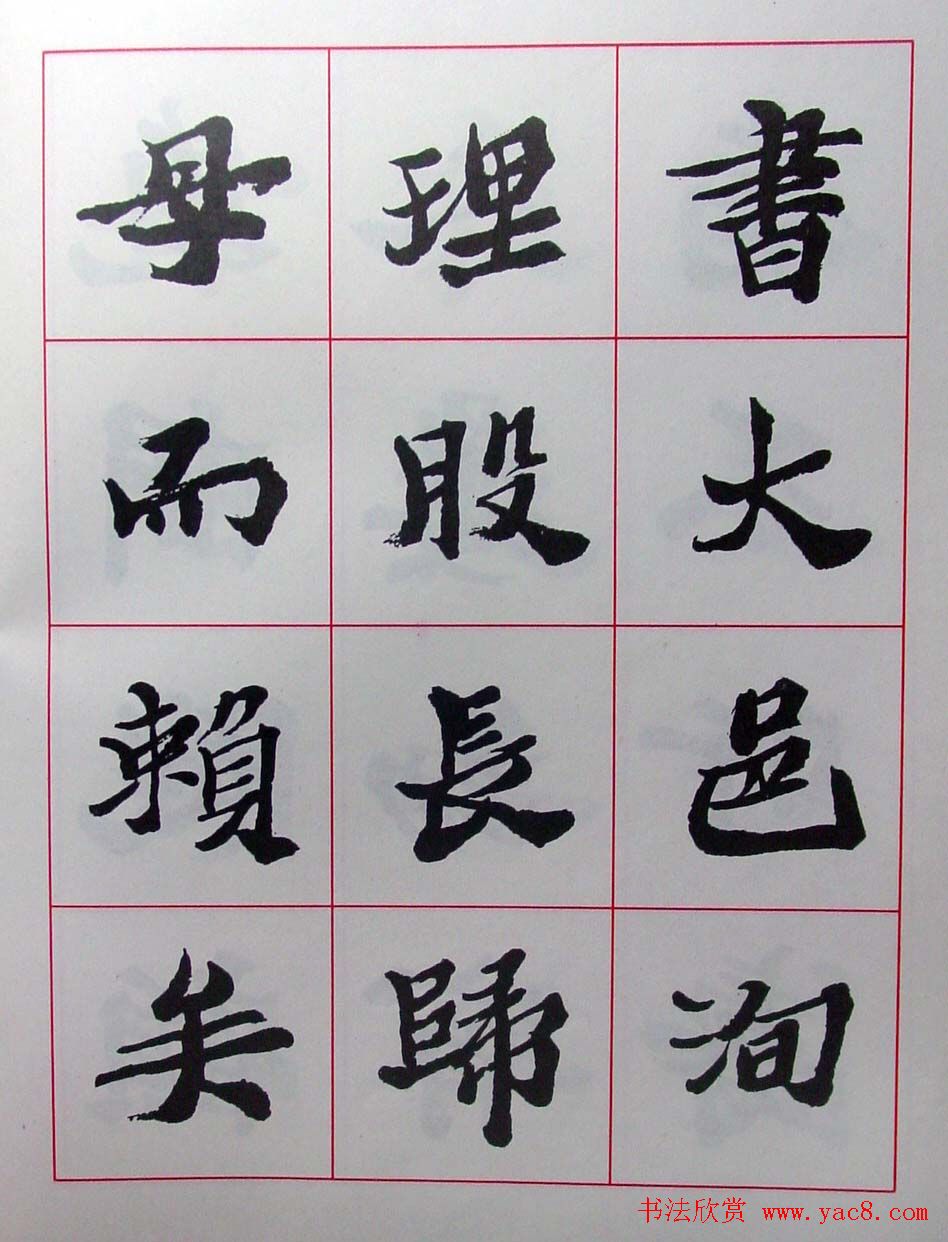 書大邑洵
理股長歸
母而賴矣
书法欣赏 www.yac8.com